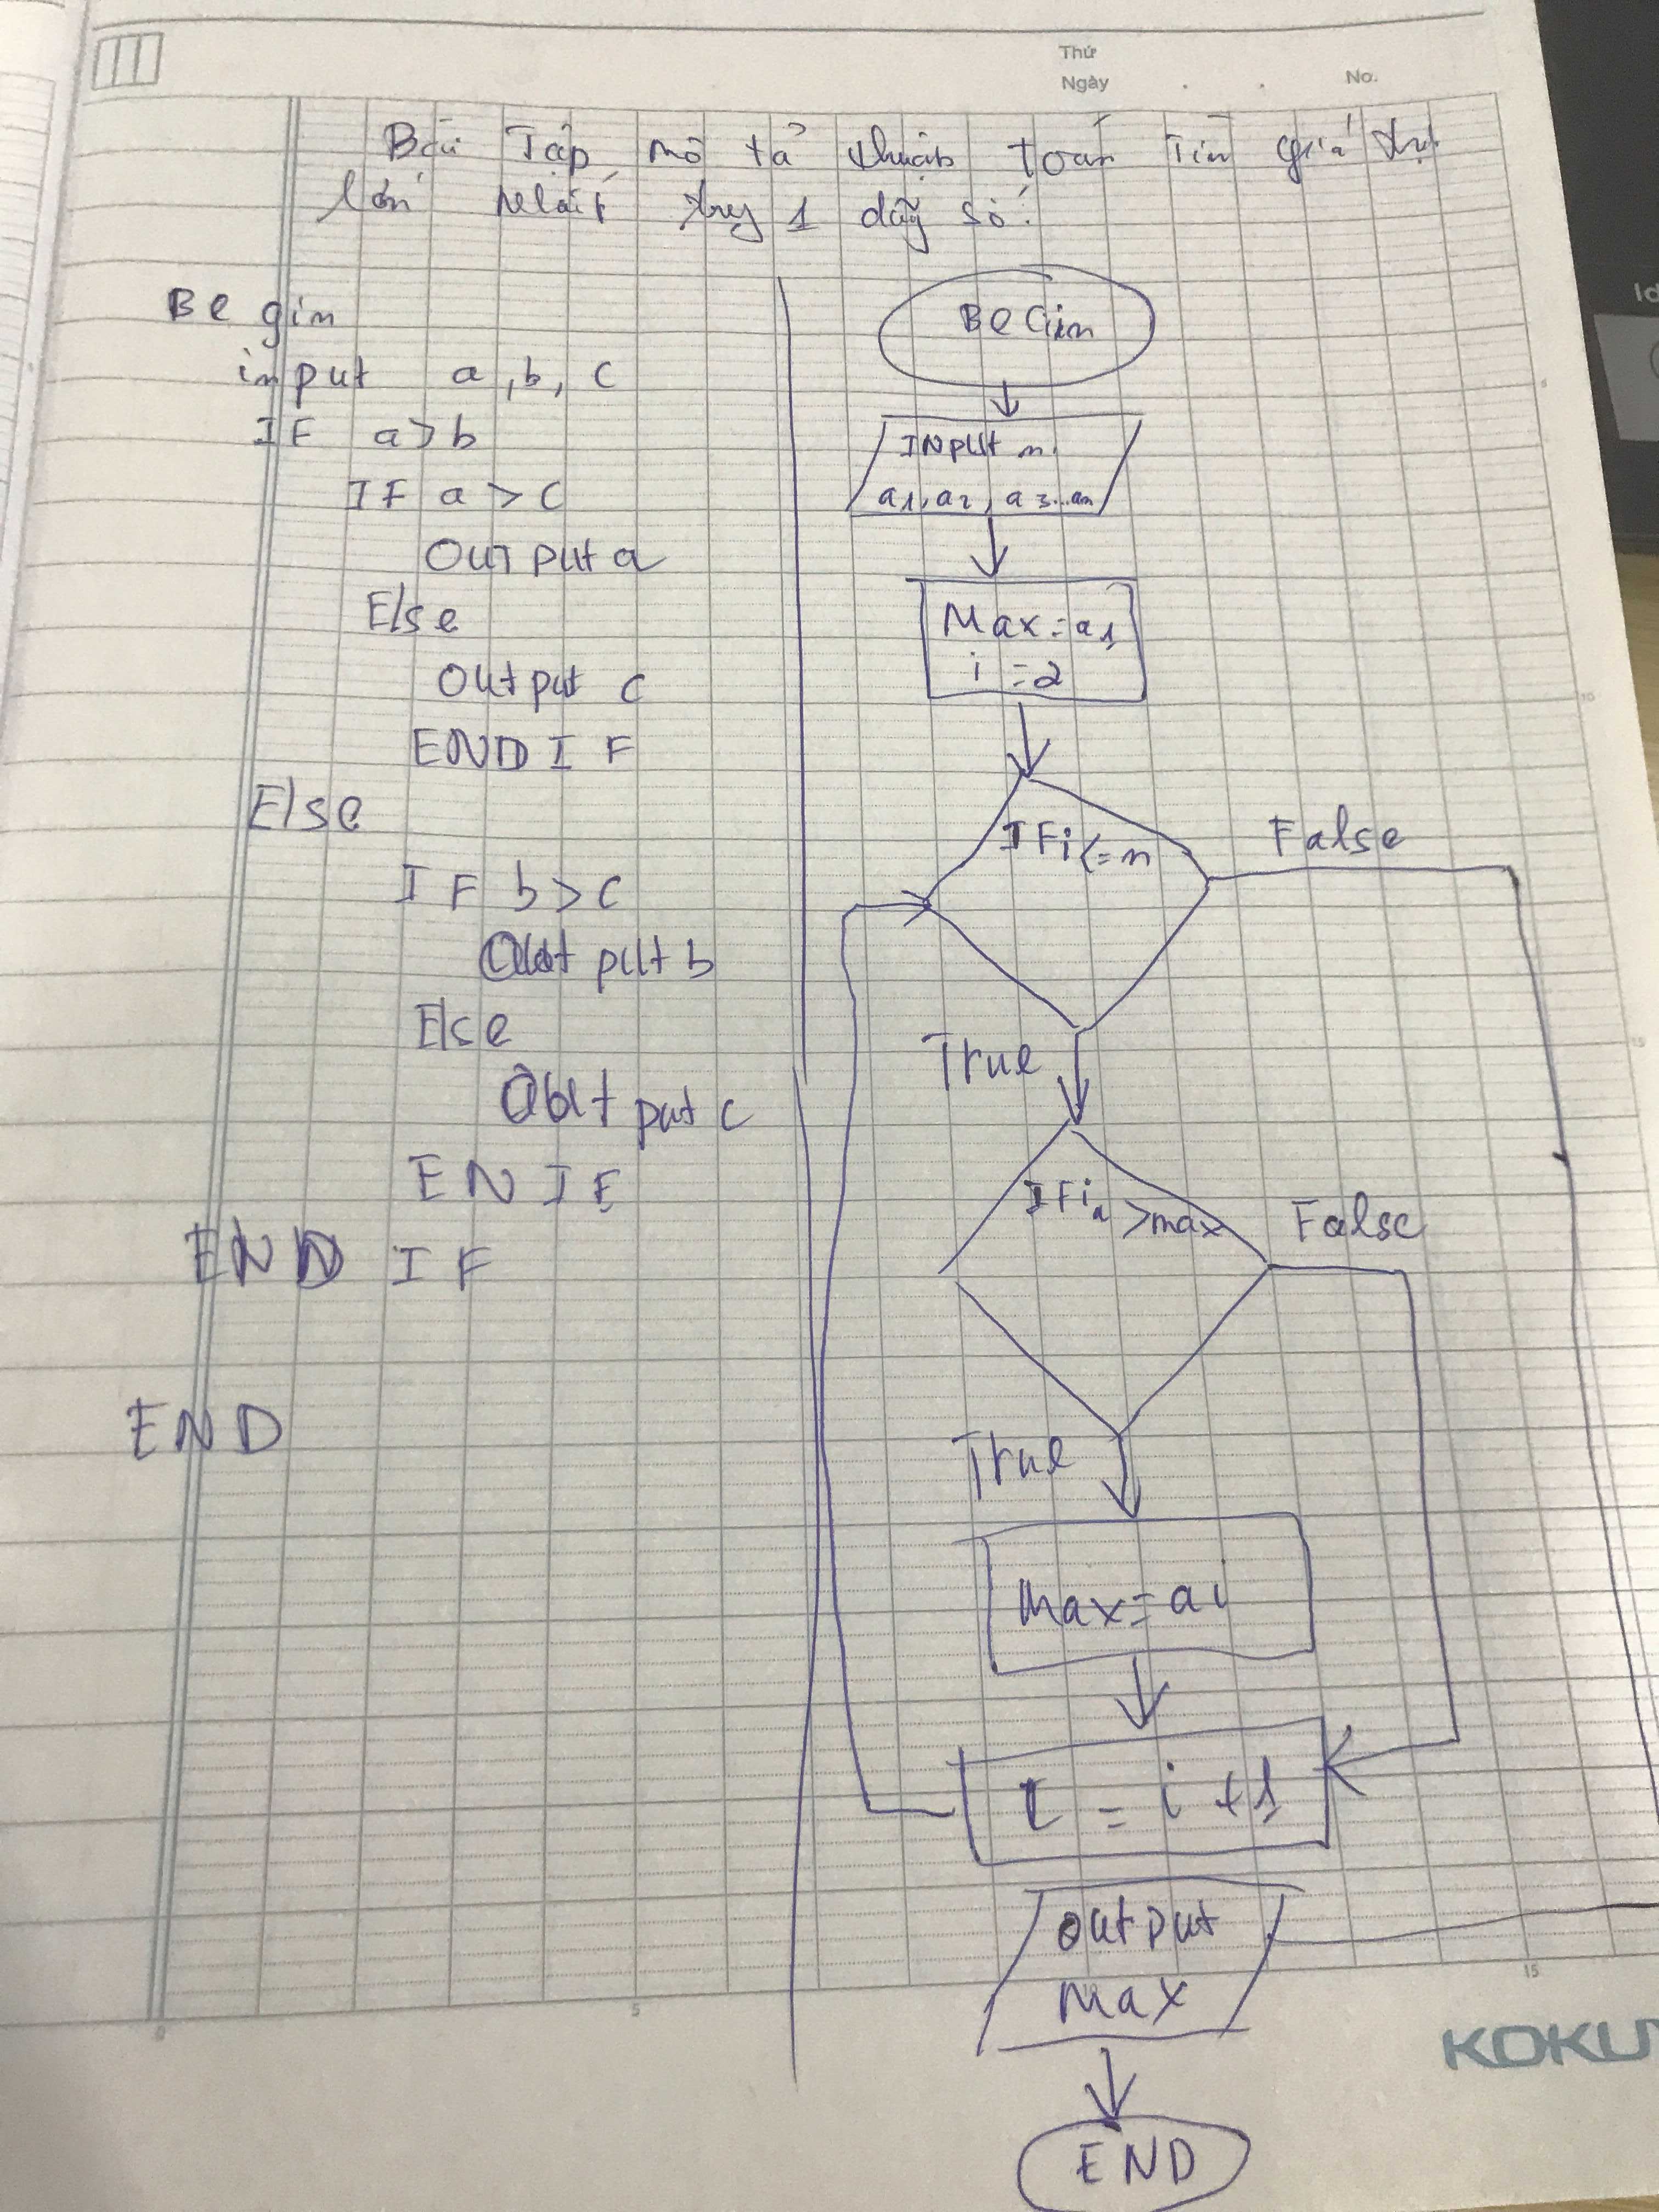 Thứ
Ngày . . No.
Bài Tập mô tả thuật toán Tìm giá trị
lớn nhất 1 dãy số.
Begin
input a, b, c
IF a>b
IF a > c
OUTPUt a
Else
Output c
END IF
Else
IF b > c
Output b
Else
Output c
EN IF
END IF
END
BeGin
INPUt n.
a1, a2, a3...an
Max = a1
i = 2
IF i <= n
False
True
IF ia > max
False
True
max = ai
i = i + 1
output
max
END
5
10
15
0
5
15
KOKU
Id